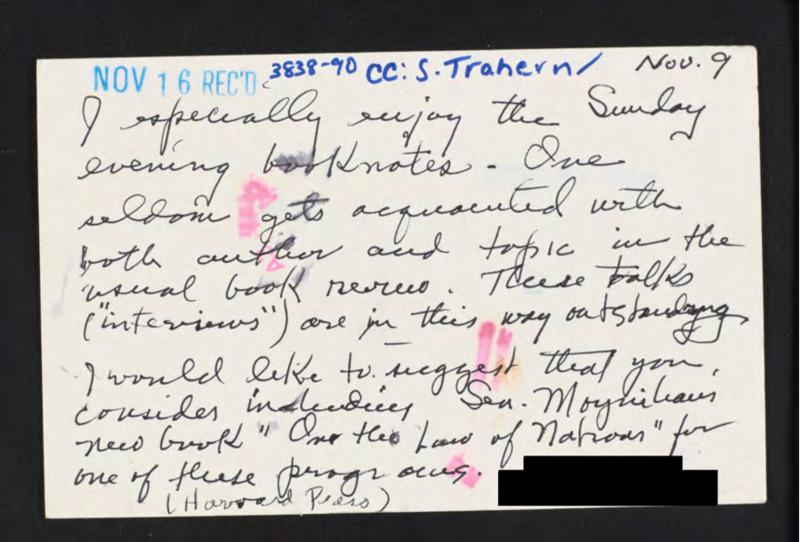 NOV 16 REC'D 3838-90 CC: S. Trahern/ Nov. 9
I especially enjoy the Sunday
evening booknotes. One
seldom gets acquainted with
both author and topic in the
usual book review. These talks
("interviews") are in this way outstanding
I would like to suggest that you,
consider including Sen. Moynihans
new book "On the Law of Nations" for
one of these programs.
(Harvard Press)